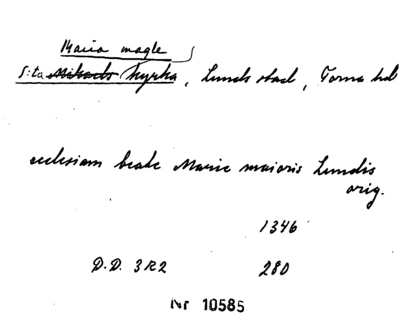 Maria magle
S:ta Mikaels kyrka, Lunds stad, Torna hd
ecclesiam beate Marie maioris Lundis
orig.
1346
D.D. 3R2 280
Nr 10585